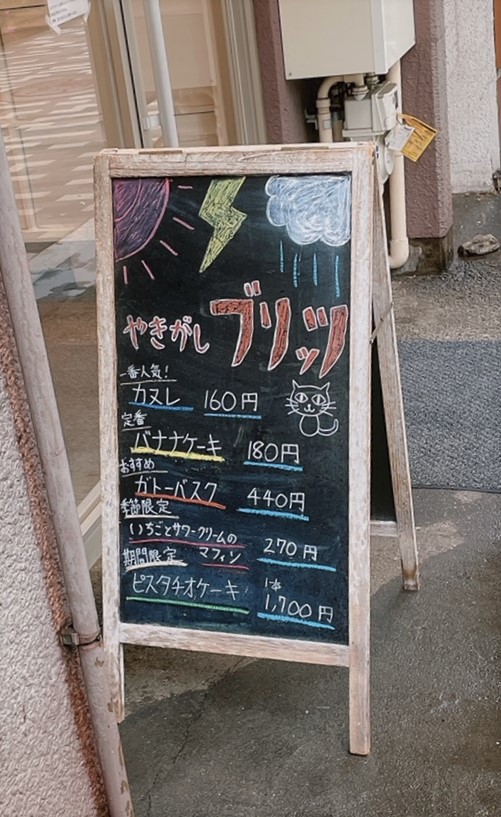 やきがし ブリッツ
一番人気!
カヌレ 160円
定番
バナナケーキ 180円
おすすめ
ガトーバスク 440円
季節限定
いちごとサワークリームの
マフィン 270円
期間限定
ピスタチオケーキ 1本 1,700円